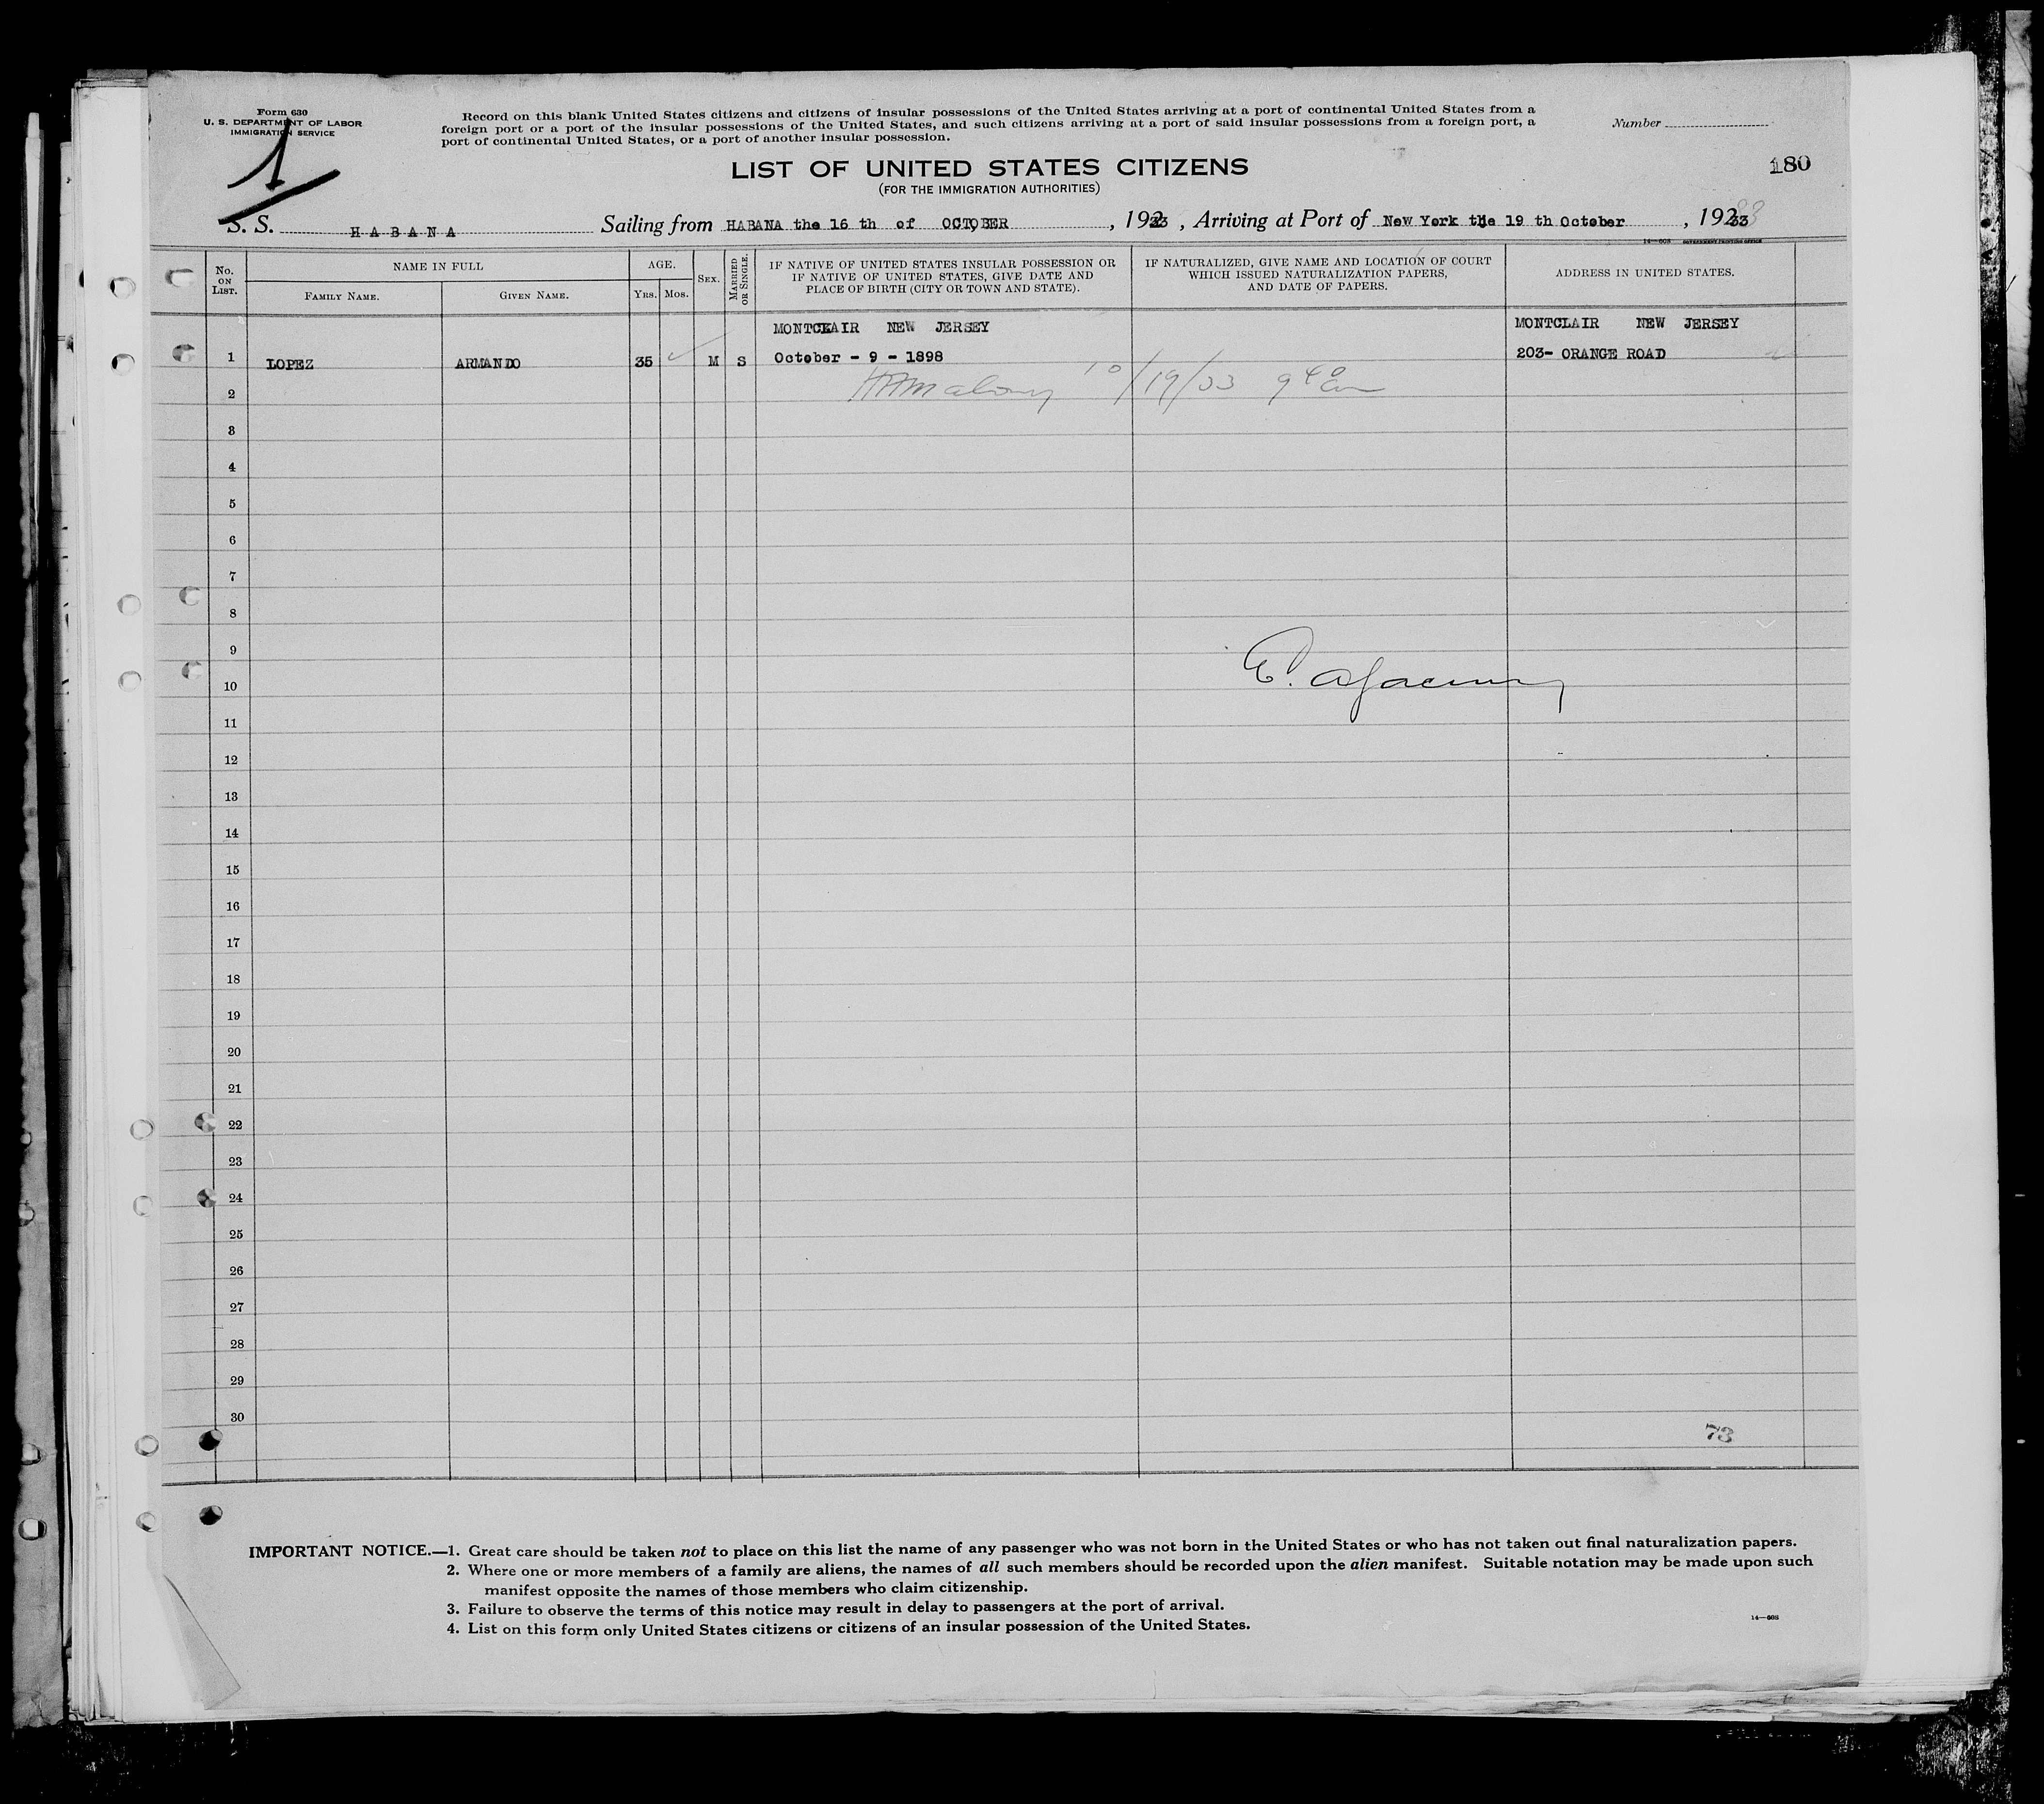 Form 630
U. S. DEPARTMENT OF LABOR
IMMIGRATION SERVICE
1
Record on this blank United States citizens and citizens of insular possessions of the United States arriving at a port of continental United States from a
foreign port or a port of the insular possessions of the United States, and such citizens arriving at a port of said insular possessions from a foreign port, a
port of continental United States, or a port of another insular possession.
Number
LIST OF UNITED STATES CITIZENS
(FOR THE IMMIGRATION AUTHORITIES)
180
S. S. HABANA Sailing from HABANA the 16 th of OCTOBER , 19233 , Arriving at Port of New York the 19 th October , 19233 33
14—608 GOVERNMENT PRINTING OFFICE
No. ON LIST. NAME IN FULL AGE. SEX. MARRIED OR SINGLE. IF NATIVE OF UNITED STATES INSULAR POSSESSION OR IF NATIVE OF UNITED STATES, GIVE DATE AND PLACE OF BIRTH (CITY OR TOWN AND STATE). IF NATURALIZED, GIVE NAME AND LOCATION OF COURT WHICH ISSUED NATURALIZATION PAPERS, AND DATE OF PAPERS. ADDRESS IN UNITED STATES.
FAMILY NAME. GIVEN NAME. YRS. MOS.
MONTCLAIR NEW JERSEY MONTCLAIR NEW JERSEY
1 LOPEZ ARMANDO 35 M S October - 9 - 1898 203- ORANGE ROAD
2 10/19/33 9 40 am
3
4
5
6
7
8
9
10
11
12
13
14
15
16
17
18
19
20
21
22
23
24
25
26
27
28
29
30
73
IMPORTANT NOTICE.—1. Great care should be taken not to place on this list the name of any passenger who was not born in the United States or who has not taken out final naturalization papers.
2. Where one or more members of a family are aliens, the names of all such members should be recorded upon the alien manifest. Suitable notation may be made upon such
manifest opposite the names of those members who claim citizenship.
3. Failure to observe the terms of this notice may result in delay to passengers at the port of arrival.
4. List on this form only United States citizens or citizens of an insular possession of the United States.
14—608